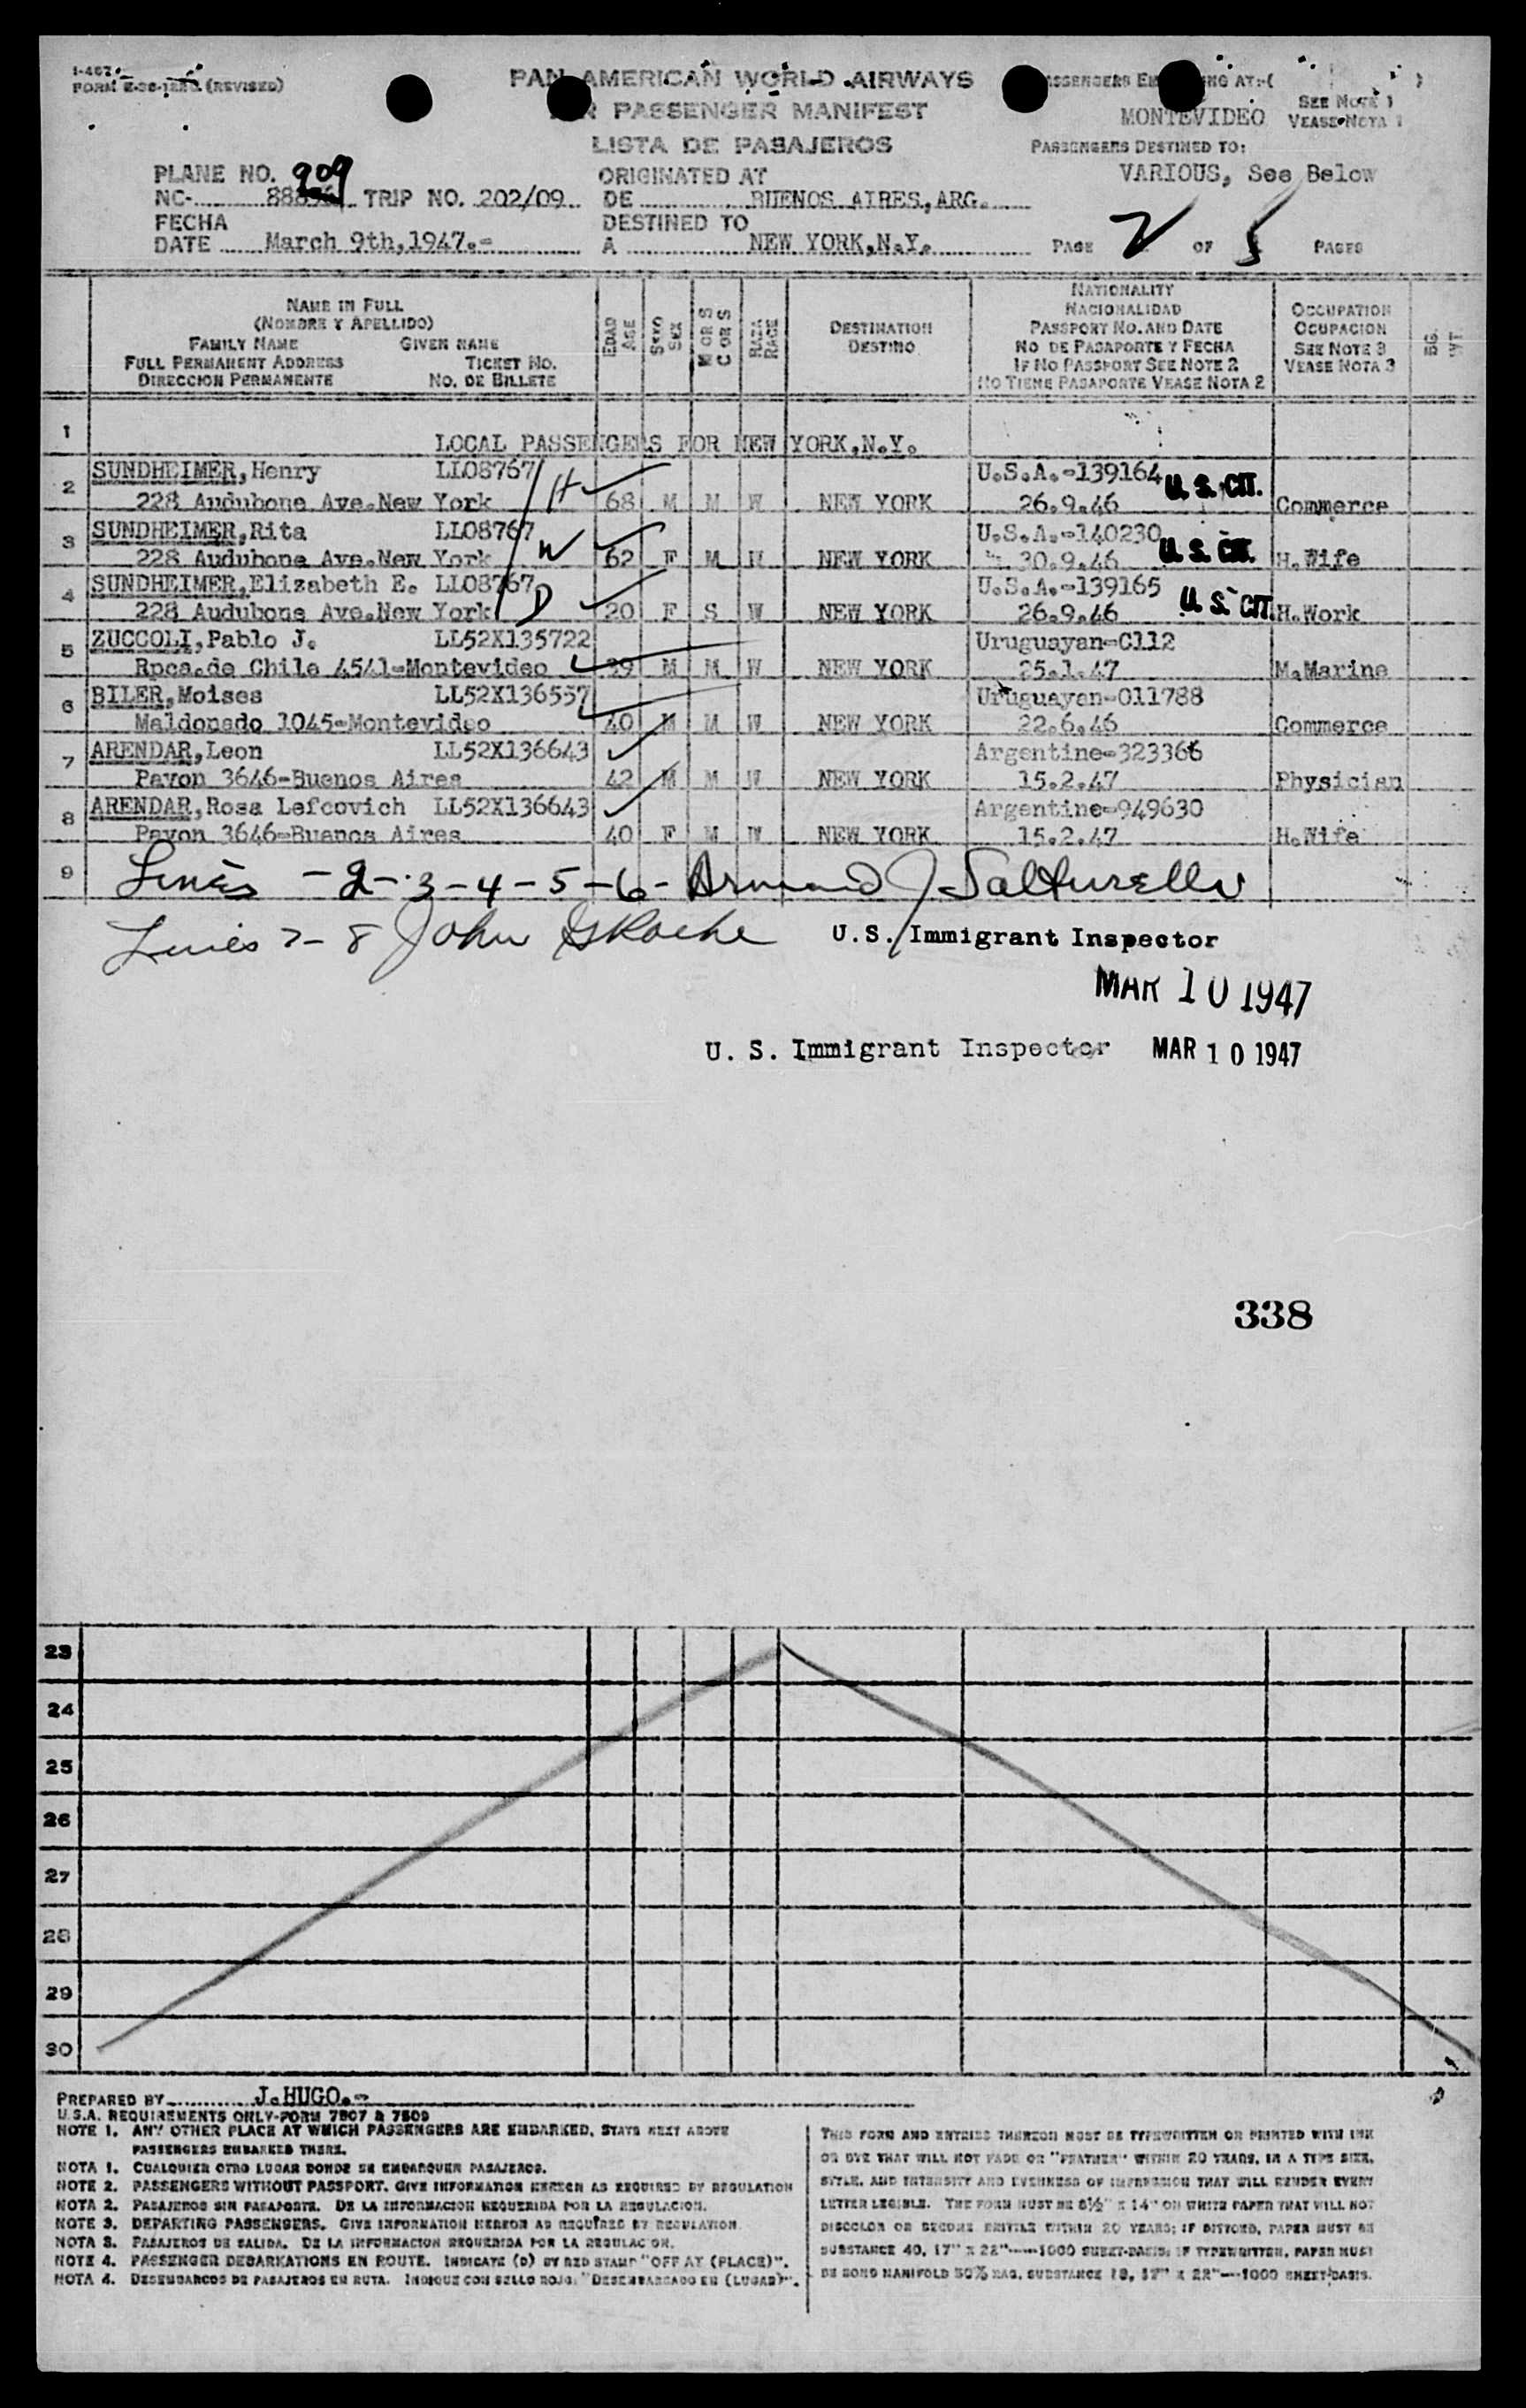 I-467
FORM (REVISED)
PAN AMERICAN WORLD AIRWAYS
PASSENGER MANIFEST
LISTA DE PASAJEROS
PASSENGERS EMBARKING AT:-( )
MONTEVIDEO
SEE NOTE 1
VEASE NOTA 1
PASSENGERS DESTINED TO:
VARIOUS, See Below
PLANE NO. 909
NC- TRIP NO. 202/09
FECHA
DATE March 9th,1947.-
ORIGINATED AT
DE BUENOS AIRES,ARG.
DESTINED TO
A NEW YORK,N.Y.
PAGE 2 OF 5 PAGES
NAME IN FULL
(NOMBRE Y APELLIDO)
FAMILY NAME GIVEN NAME
FULL PERMANENT ADDRESS TICKET NO.
DIRECCION PERMANENTE NO. DE BILLETE
EDAD AGE
SEXO SEX
M OR S C OR S
RAZA RACE
DESTINATION
DESTINO
NATIONALITY
NACIONALIDAD
PASSPORT NO. AND DATE
NO DE PASAPORTE Y FECHA
IF NO PASSPORT SEE NOTE 2
NO TIENE PASAPORTE VEASE NOTA 2
OCCUPATION
OCUPACION
SEE NOTE 3
VEASE NOTA 3
BG. WT
1 LOCAL PASSENGERS FOR NEW YORK,N.Y.
2 SUNDHEIMER,Henry LL08767 H U.S.A.-139164 U. S. CIT.
228 Audubone Ave.New York 68 M M W NEW YORK 26.9.46 Commerce
3 SUNDHEIMER,Rita LL08767 W U.S.A.-140230 U. S. CIT.
228 Audubone Ave.New York 62 F M W NEW YORK 30.9.46 H.Wife
4 SUNDHEIMER,Elizabeth E. LL08767 D U.S.A.-139165 U. S. CIT.
228 Audubone Ave.New York 20 F S W NEW YORK 26.9.46 H.Work
5 ZUCCOLI,Pablo J. LL52X135722 Uruguayan-C112
Rpca.de Chile 4541-Montevideo 39 M M W NEW YORK 25.1.47 M.Marine
6 BILER,Moises LL52X136557 Uruguayan-011788
Maldonado 1045-Montevideo 40 M M W NEW YORK 22.6.46 Commerce
7 ARENDAR,Leon LL52X136643 Argentine-323366
Pavon 3646-Buenos Aires 42 M M W NEW YORK 15.2.47 Physician
8 ARENDAR,Rosa Lefcovich LL52X136643 Argentine-949630
Pavon 3646-Buenos Aires 40 F M W NEW YORK 15.2.47 H.Wife
9 Lines -2-3-4-5-6- Armand J Salturelli
Lines 7-8 John G Roche U.S. Immigrant Inspector
MAR 10 1947
U. S. Immigrant Inspector MAR 10 1947
338
23
24
25
26
27
28
29
30
PREPARED BY J.HUGO.-
U.S.A. REQUIREMENTS ONLY-FORM 7507 & 7509
NOTE 1. ANY OTHER PLACE AT WHICH PASSENGERS ARE EMBARKED, STATE NEXT ABOVE
PASSENGERS EMBARKED THERE.
NOTA 1. CUALQUIER OTRO LUGAR DONDE SE EMBARQUEN PASAJEROS.
NOTE 2. PASSENGERS WITHOUT PASSPORT. GIVE INFORMATION HEREON AS REQUIRED BY REGULATION
NOTA 2. PASAJEROS SIN PASAPORTE. DE LA INFORMACION REQUERIDA POR LA REGULACION.
NOTE 3. DEPARTING PASSENGERS. GIVE INFORMATION HEREON AS REQUIRED BY REGULATION.
NOTA 3. PASAJEROS DE SALIDA. DE LA INFORMACION REQUERIDA POR LA REGULACION.
NOTE 4. PASSENGER DEBARKATIONS EN ROUTE. INDICATE (D) BY RED STAMP "OFF AT (PLACE)".
NOTA 4. DESEMBARCOS DE PASAJEROS EN RUTA. INDIQUE CON SELLO ROJO: "DESEMBARCADO EN (LUGAR)".
THIS FORM AND ENTRIES THEREON MUST BE TYPEWRITTEN OR PRINTED WITH INK
OR DYE THAT WILL NOT FADE OR "FEATHER" WITHIN 20 YEARS, IN A TYPE SIZE,
STYLE, AND INTENSITY AND EVENNESS OF IMPRESSION THAT WILL RENDER EVERY
LETTER LEGIBLE. THE FORM MUST BE 8½" X 14" ON WHITE PAPER THAT WILL NOT
DISCOLOR OR BECOME BRITTLE WITHIN 20 YEARS; IF DITTOED, PAPER MUST BE
SUBSTANCE 40, 17" X 22"-----1000 SHEET-BASIS; IF TYPEWRITTEN, PAPER MUST
BE BOND MANIFOLD 50% RAG, SUBSTANCE 18, 17" X 22"---1000 SHEET BASIS.